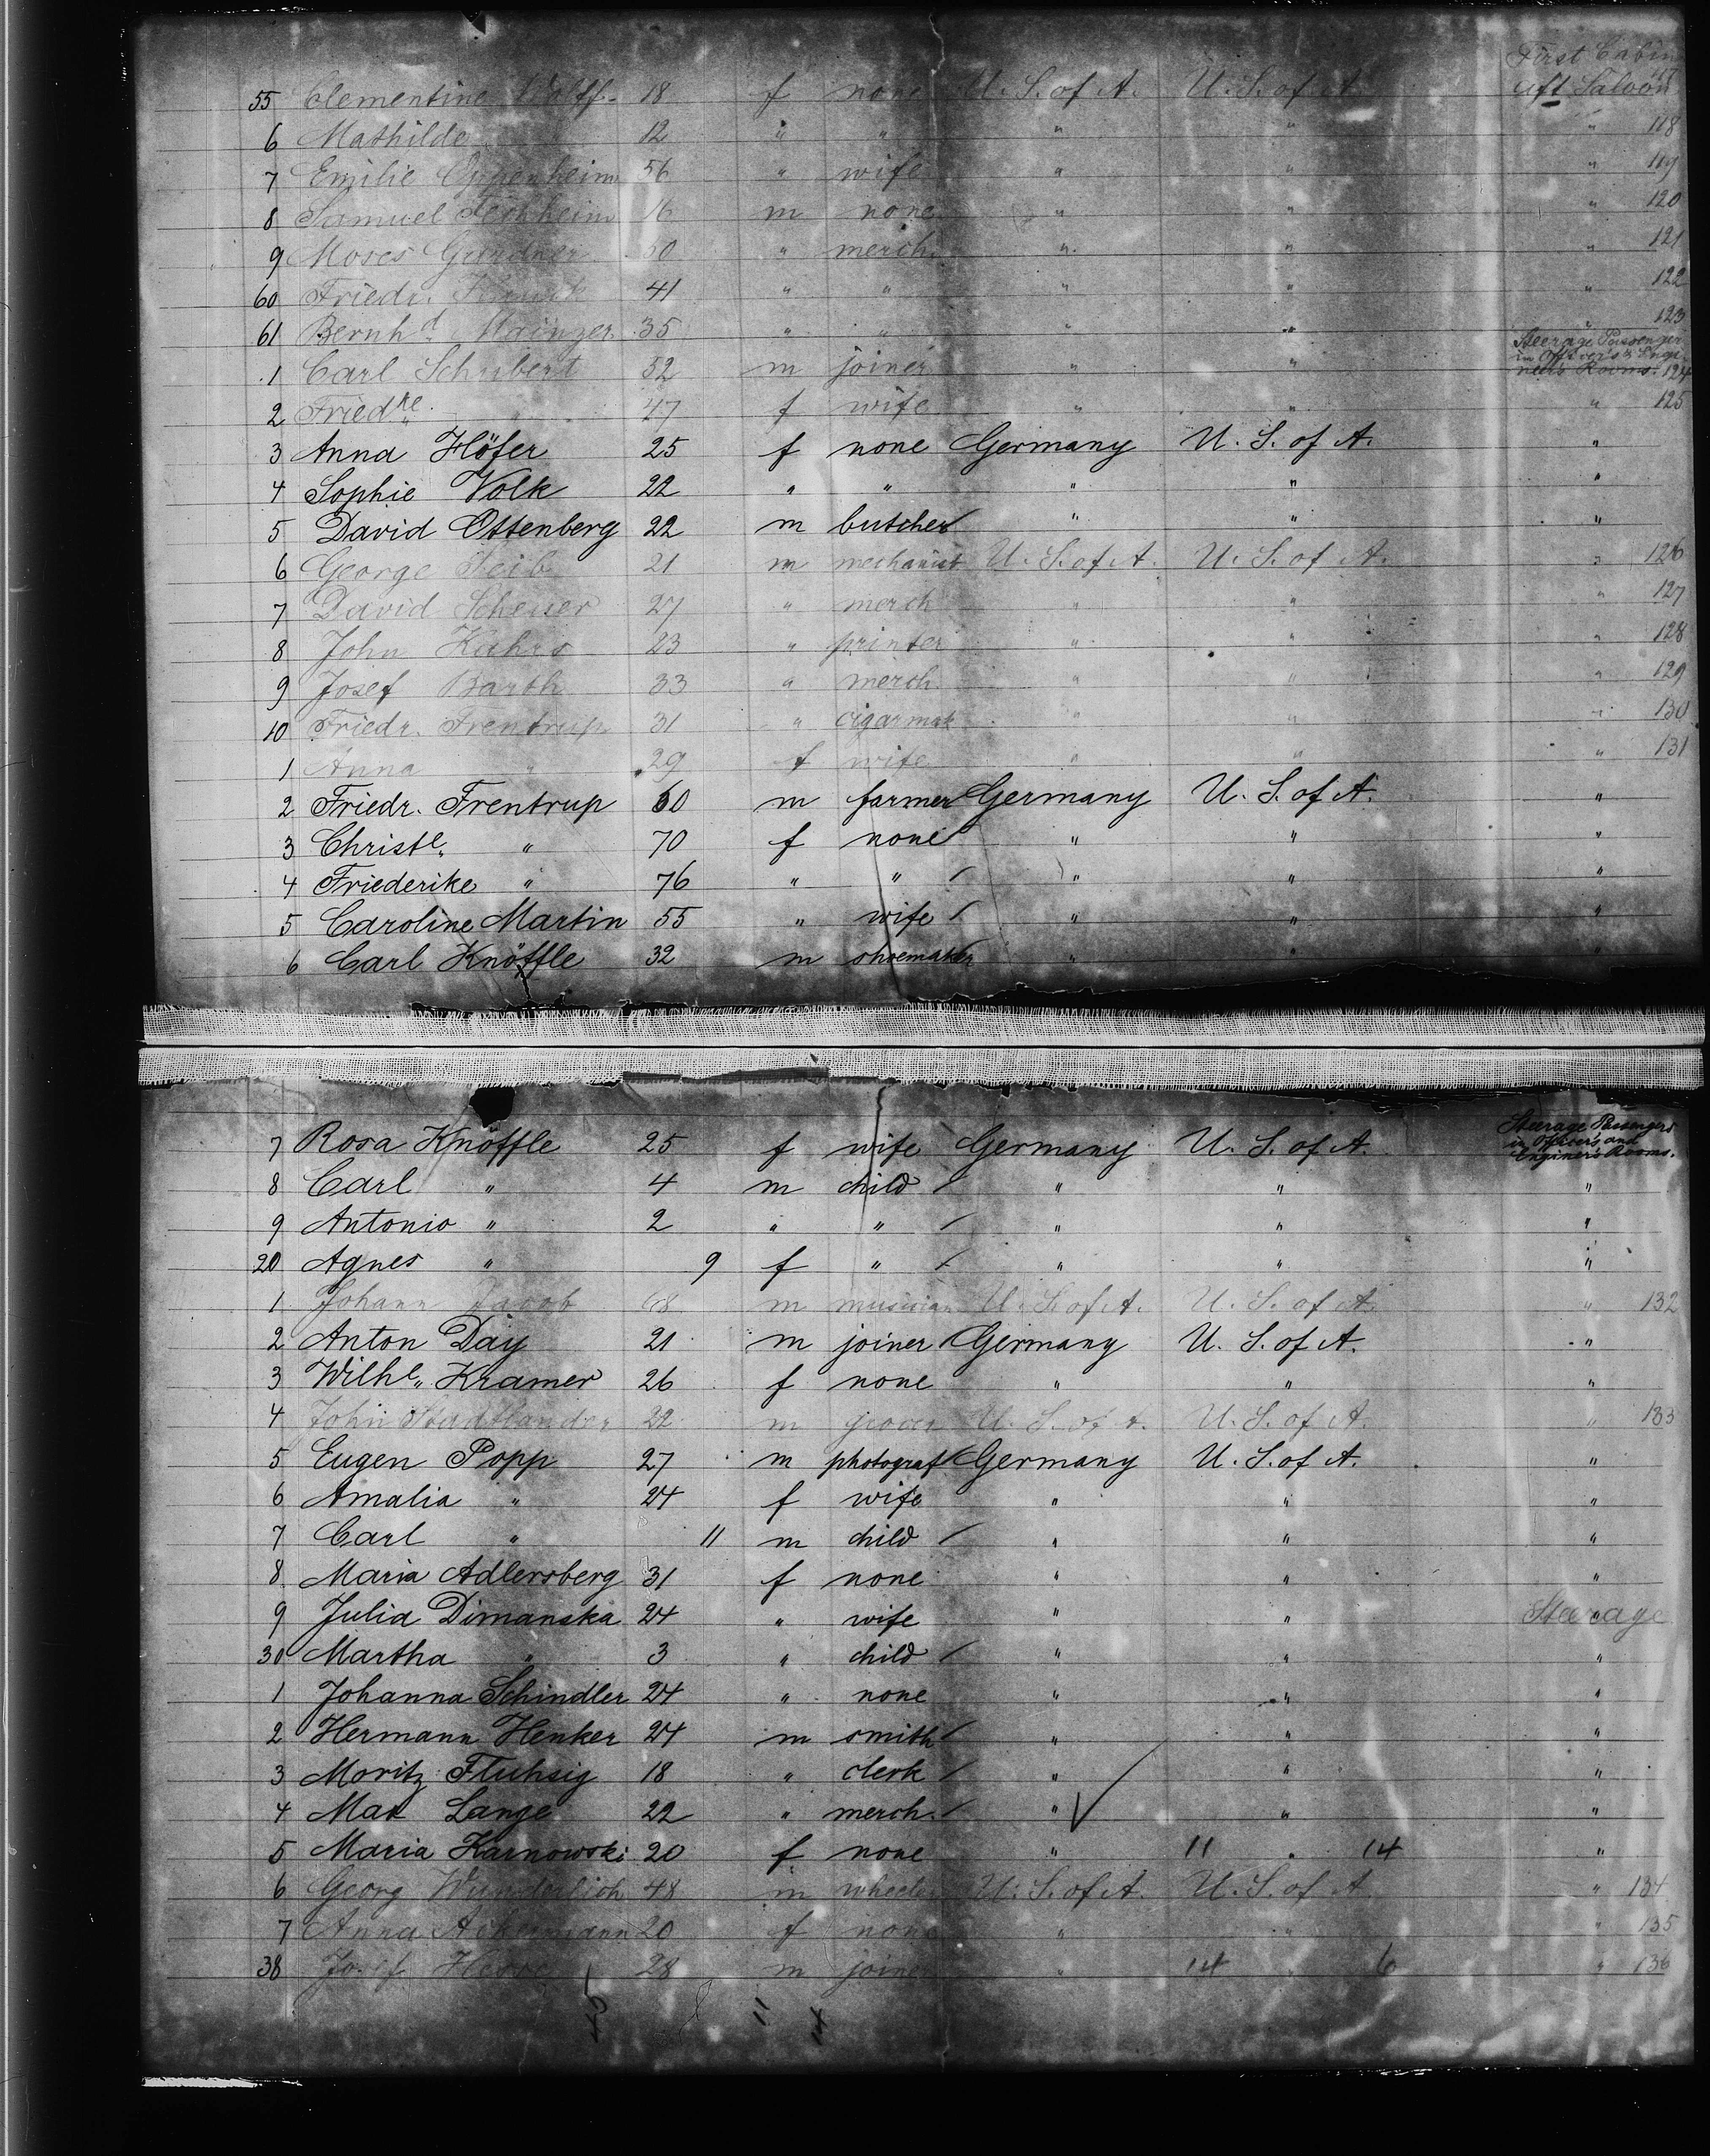 First Cabin
55 Clementine Wolff 18 f none U. S. of A. U. S. of A. aft Saloon
6 Mathilde " 12 " " " " " 118
7 Emilie Oppenheim 56 " wife " " " 119
8 Samuel Fechheim 16 m none " " " 120
9 Moses " merch. " " " 121
60 Friedr. 41 " " " " " 122
61 Bernhd. Mainzer 35 " " " " " 123
Steerage Passenger
in Officer's & Engi-
neer's Rooms. 124
1 Carl Schubert 52 m joiner " "
2 Friedke. " 47 f wife " " " 125
3 Anna Höfer 25 f none Germany U. S. of A. "
4 Sophie Volk 22 " " " " "
5 David Ottenberg 22 m butcher " " "
6 George Seib 21 m mechanist U. S. of A. U. S. of A. " 126
7 David Scheuer 27 " merch " " " 127
8 John Kahrs 23 " printer " " " 128
9 Josef Barth 33 " merch " " " 129
10 Friedr. Frentrup 31 " cigarmak " " " 130
1 Anna " 29 f wife " " " 131
2 Friedr. Frentrup 60 m farmer Germany U. S. of A. "
3 Christe. " 70 f none " " "
4 Friederike " 76 " " " " "
5 Caroline Martin 55 " wife " " "
6 Carl Knöffle 32 m shoemaker " " "
Steerage Passengers
in Officer's and
Enginer's Rooms.
7 Rosa Knöffle 25 f wife Germany U. S. of A.
8 Carl " 4 m child " " "
9 Antonio " 2 " " " " "
20 Agnes " 9 f " " " "
1 Johann Jacob 68 m musician U. S. of A. U. S. of A. " 132
2 Anton Day 21 m joiner Germany U. S. of A. "
3 Wilhe. Kramer 26 f none " " "
4 John Stadtlander 22 m grocer U. S. of A. U. S. of A. " 133
5 Eugen Popp 27 m photograf Germany U. S. of A. "
6 Amalia " 24 f wife " " "
7 Carl " 11 m child " " "
8 Maria Adlersberg 31 f none " " "
9 Julia Dimanska 24 " wife " " Steerage
30 Martha " 3 " child " " "
1 Johanna Schindler 24 " none " " "
2 Hermann Henker 24 m smith " " "
3 Moritz Fluhsig 18 " clerk " " "
4 Max Lange 22 " merch. " " "
5 Maria Karnowski 20 f none " 11 " 14 "
6 Georg Wunderlich 48 m wheeler U. S. of A. U. S. of A. " 134
7 Anna Ackermann 20 f none " " " 135
38 Josef Hesse 28 m joiner " 14 " 6 " 136
11 14